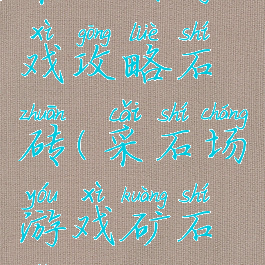 xì gōng lüè shí
戏攻略石
zhuān cǎi shí chǎng
砖(采石场
yóu xì kuàng shí
游戏矿石